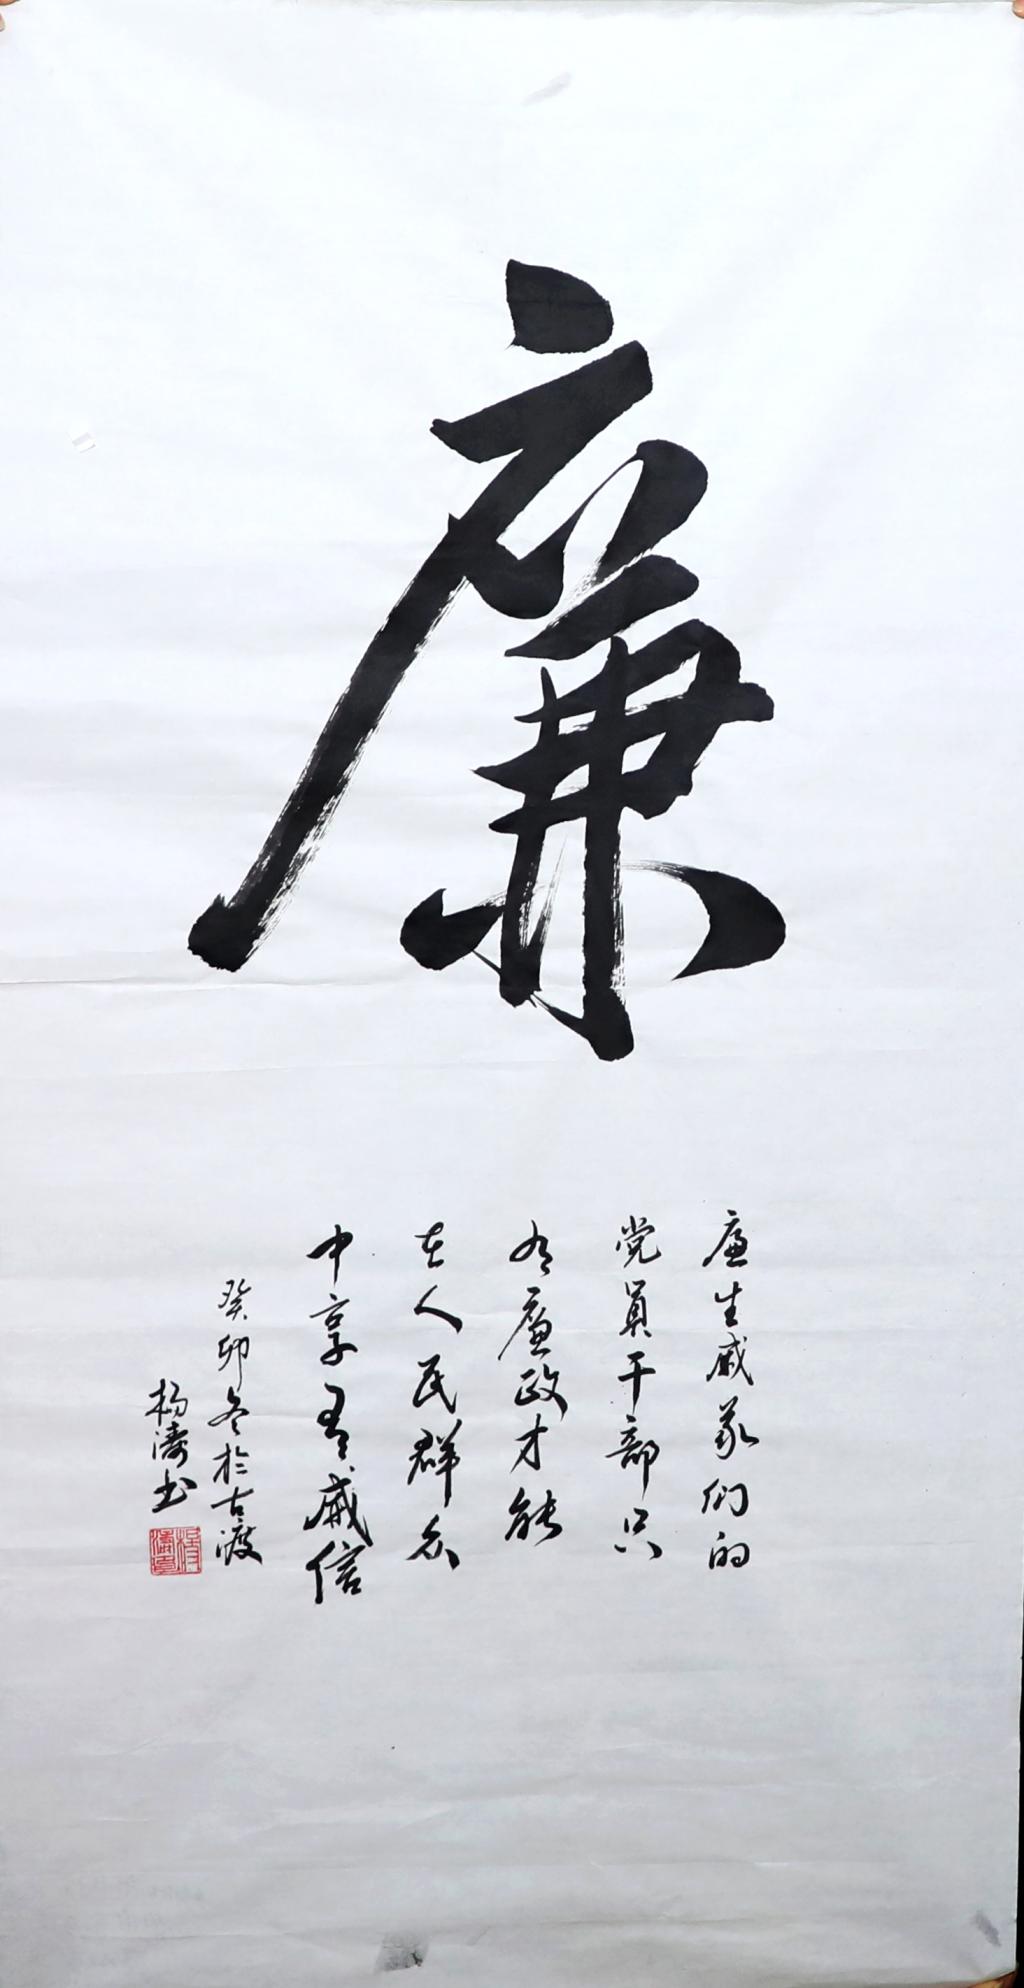 廉
廉生威我们的
党员干部只
有廉政才能
在人民群众
中享有威信
癸卯冬於古渡
杨涛书